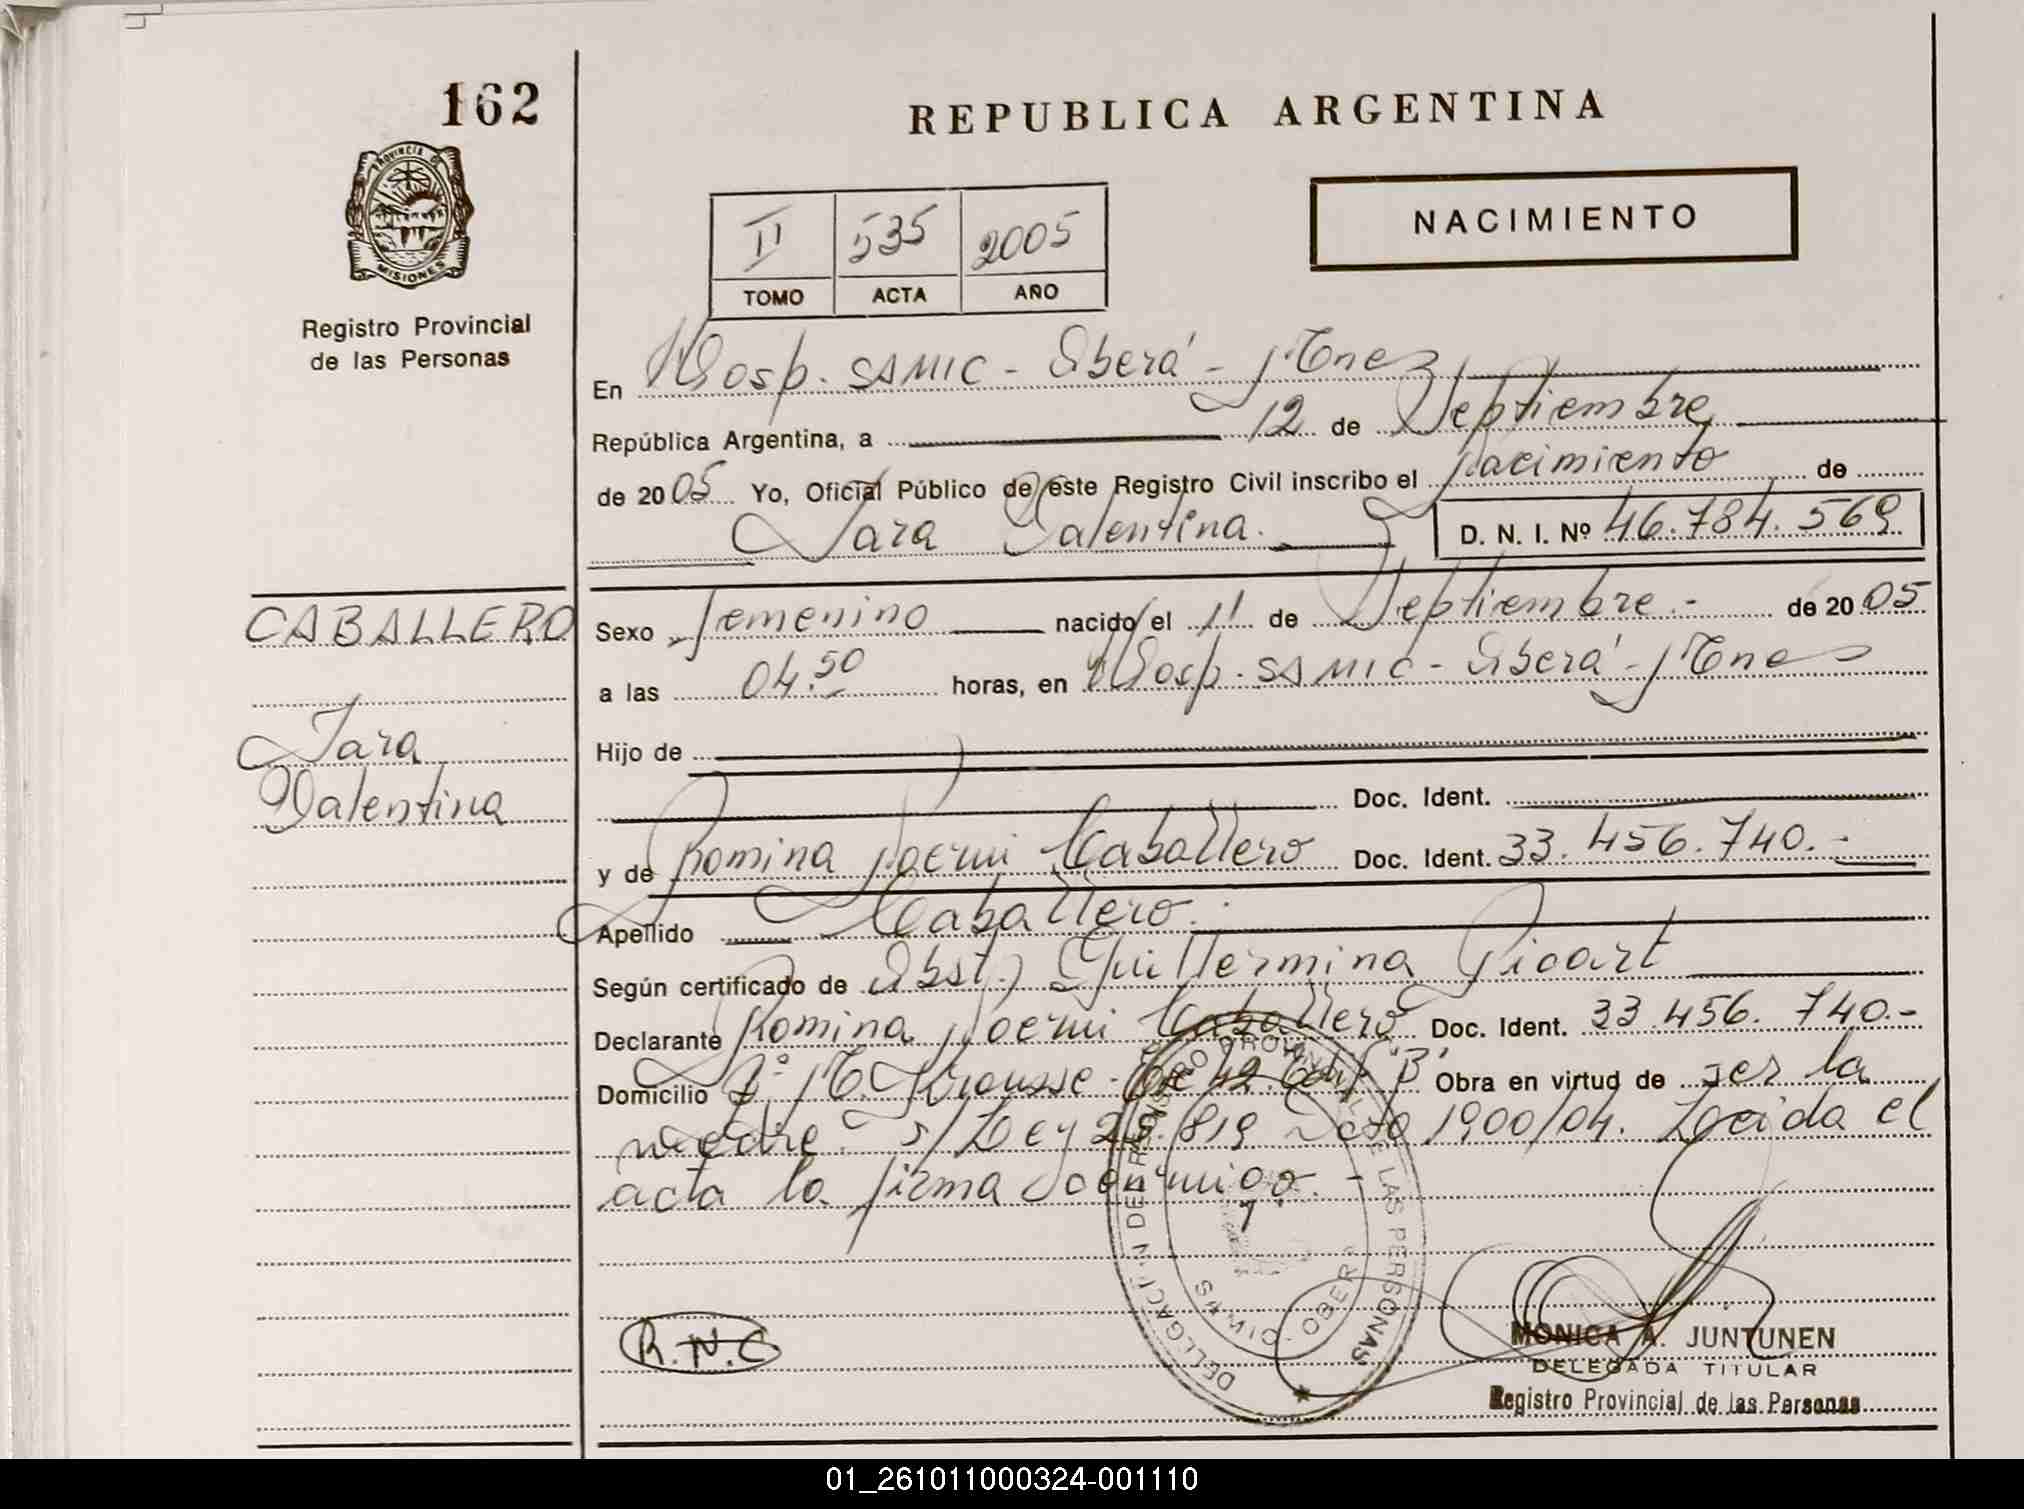 162
REPUBLICA ARGENTINA
PROVINCIA DE
MISIONES
Registro Provincial
de las Personas
II 535 2005
TOMO ACTA AÑO
NACIMIENTO
En Hosp. SAMIC - Oberá - Mnes
República Argentina, a 12 de Septiembre
de 2005 Yo, Oficial Público de este Registro Civil inscribo el nacimiento de
Iara Valentina. D. N. I. Nº 46.784.569
CABALLERO
Iara
Valentina
Sexo femenino nacido el 11 de Septiembre.- de 2005
a las 04.50 horas, en Hosp. SAMIC - Oberá - Mnes
Hijo de
Doc. Ident.
y de Romina Noemi Caballero Doc. Ident. 33.456.740.-
Apellido Caballero.
Según certificado de Obst. Guillermina
Declarante Romina Noemi Caballero Doc. Ident. 33.456.740.-
Domicilio Bº "B" Obra en virtud de ser la
madre. s/Ley 25.819 Dcto 1900/04. Leida el
acta la firma conmigo.-
R.N.C
DELEGACION DEL REGISTRO PROVINCIAL DE LAS PERSONAS
OBERA
MONICA A. JUNTUNEN
DELEGADA TITULAR
Registro Provincial de las Personas
01_261011000324-001110